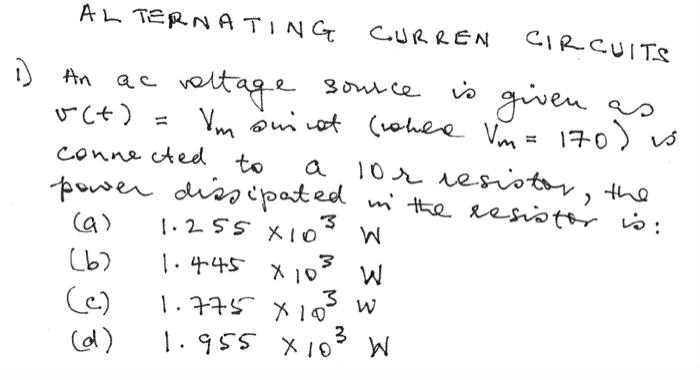 ALTERNATING CURREN CIRCUITS
1) An ac voltage source is given as
v(t) = Vm sin ωt (where Vm = 170) is
connected to a 10 Ω resistor, the
power dissipated in the resistor is:
(a) 1.255 ×10³ W
(b) 1.445 ×10³ W
(c) 1.775 ×10³ W
(d) 1.955 ×10³ W